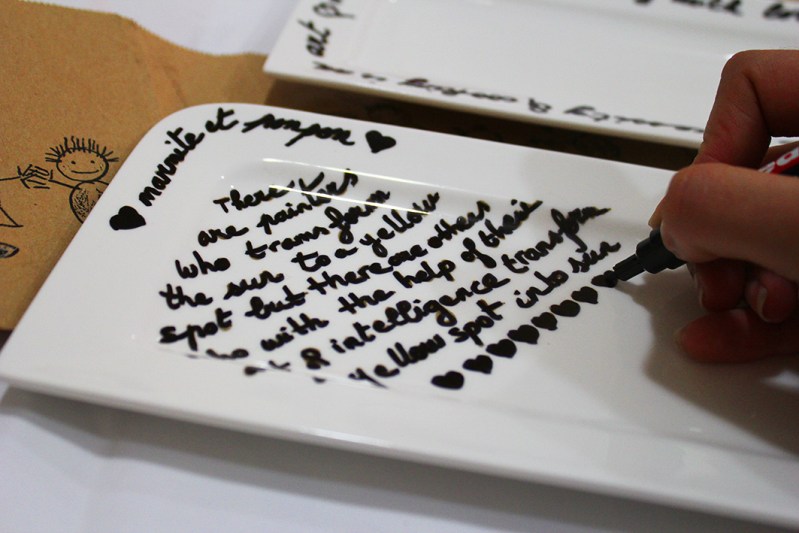 ♥ marmite et pompon ♥
There
are painters
who transform
the sun to a yellow
spot but there are others
who with the help of their
& intelligence transform
yellow spot into sun
♥♥♥♥♥♥♥♥
with
& cooking is an
art